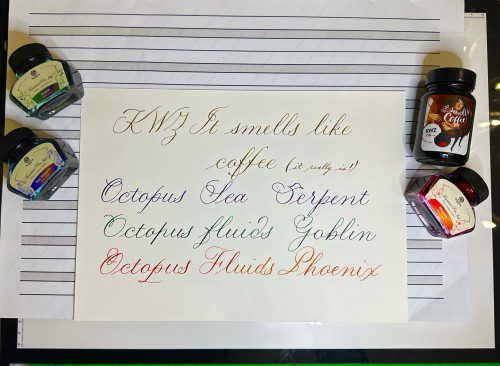 KWZ It smells like
coffee (it really is!)
Octopus Sea Serpent
Octopus fluids Goblin
Octopus Fluids Phoenix
KWZ